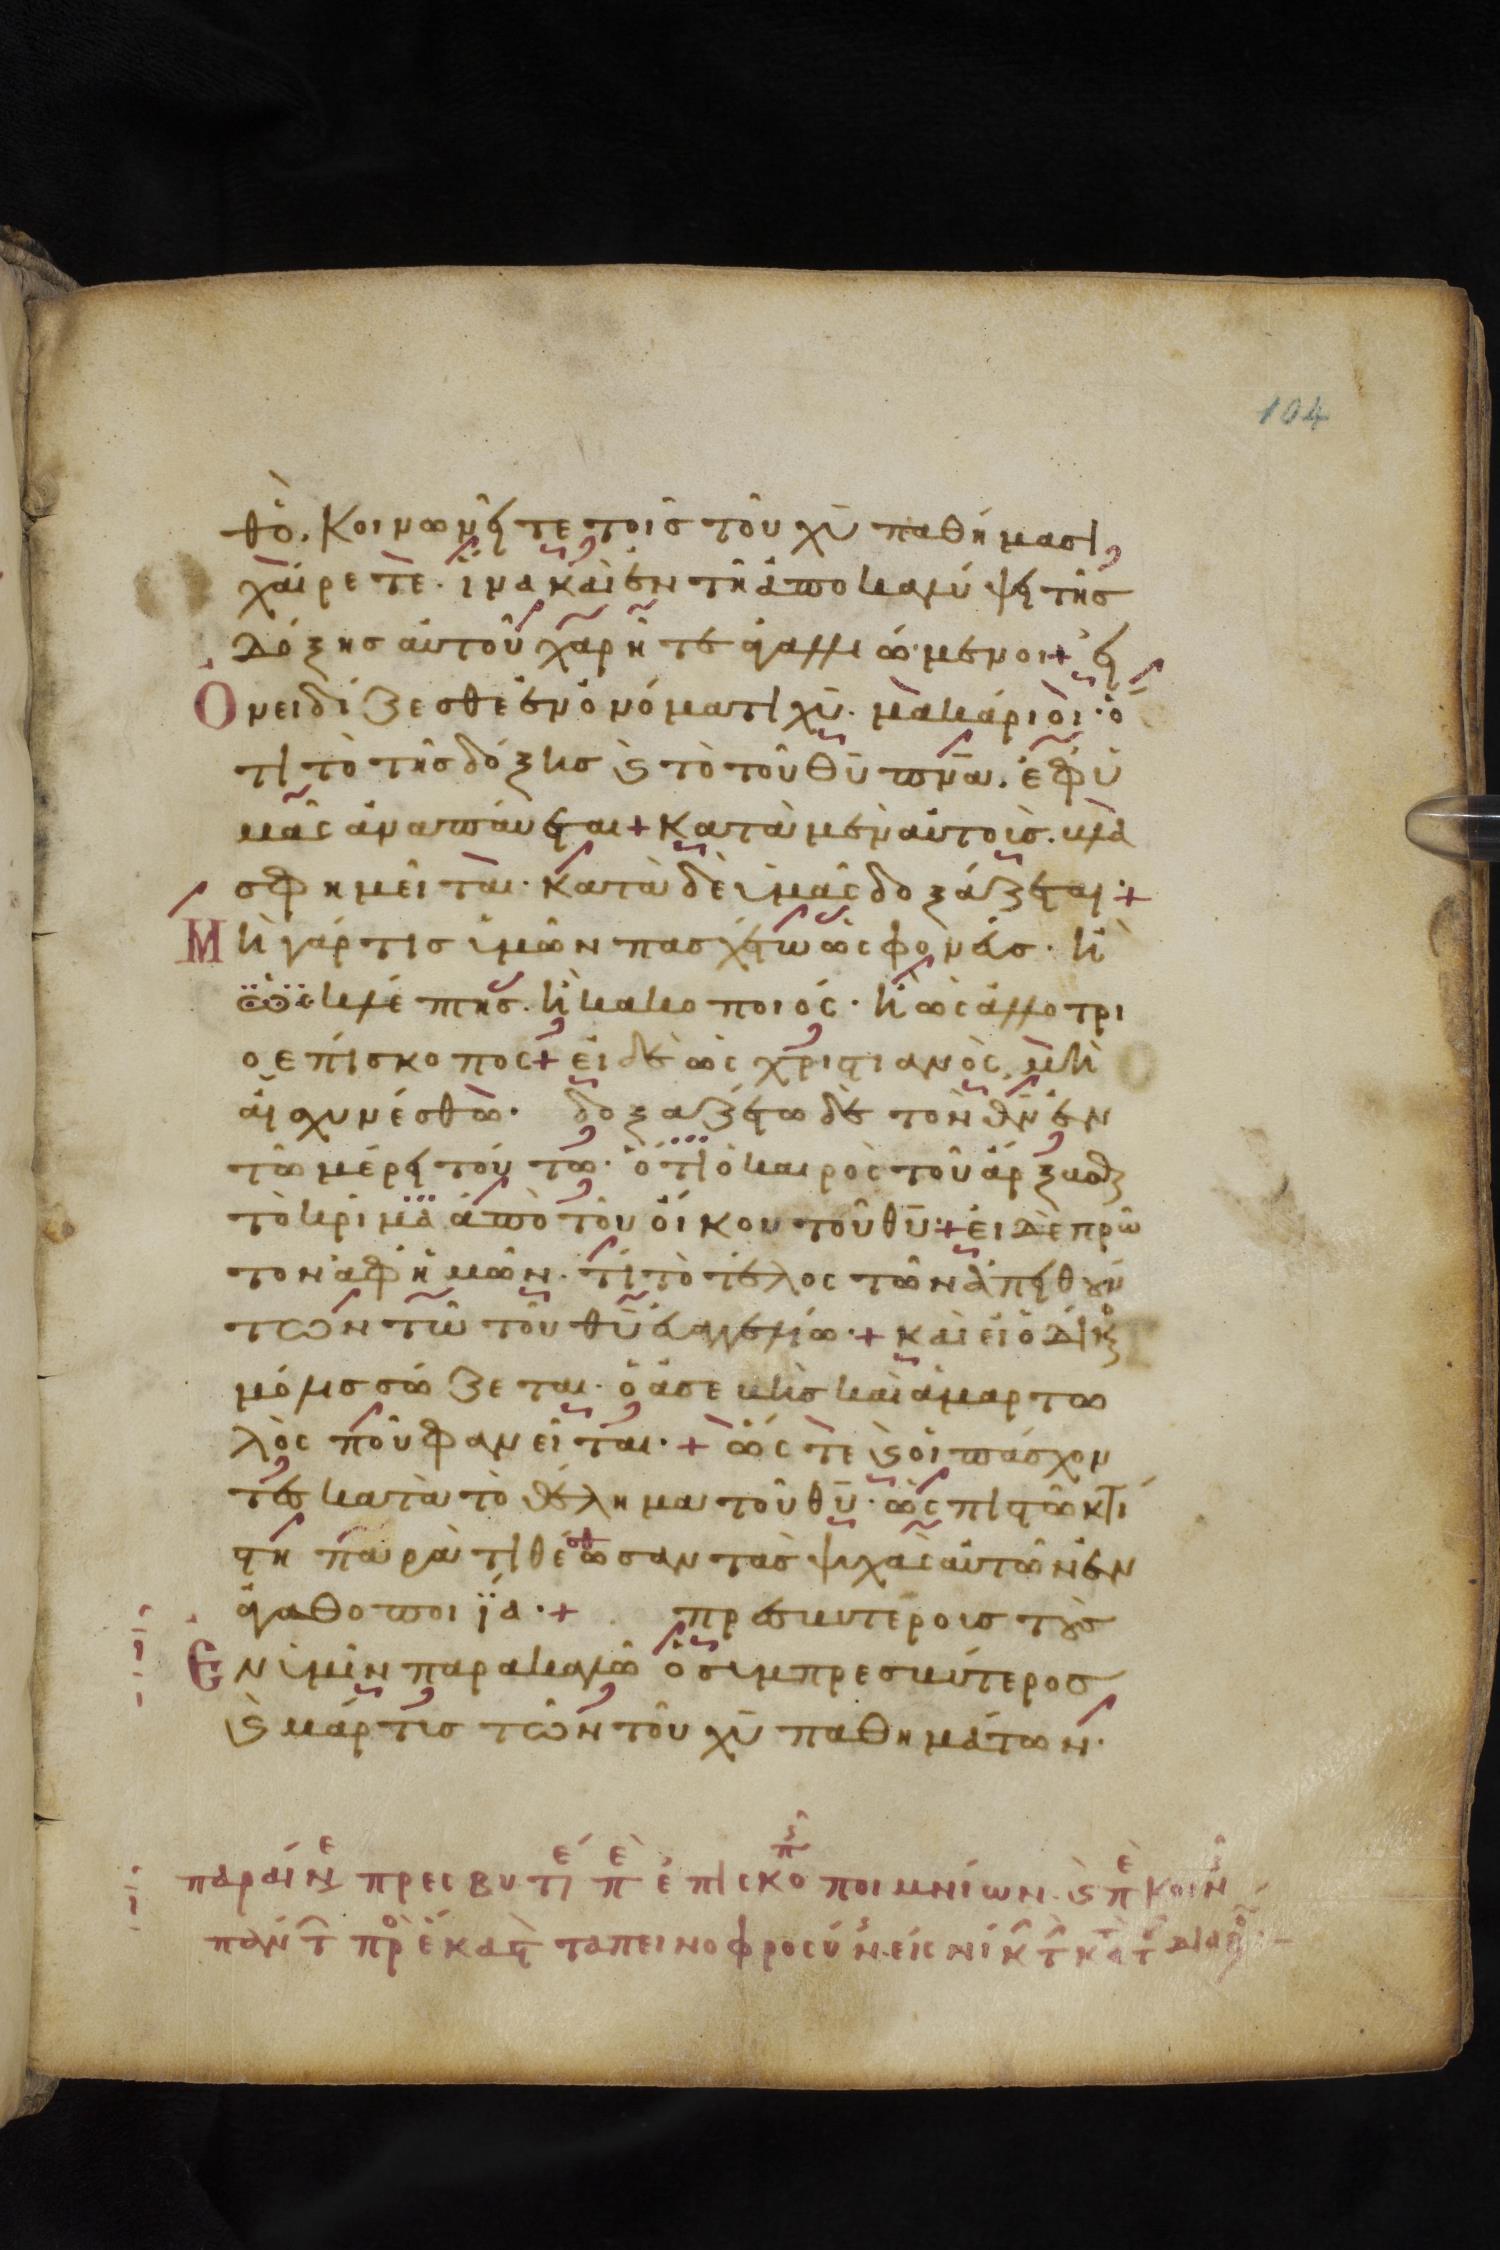 104
θὸ. Κοινωνεῖτε τοῖς τοῦ χυ παθήμασι
χαίρετε. ἵνα καὶ ἐν τῆ ἀποκαλύψει τῆς
δόξης αὐτοῦ χαρῆτε ἀγαλλιώμενοι + εἰ
Ὀνειδίζεσθε ἐν ὀνόματι χυ. μακάριοι. ὅ
τι τὸ τῆς δόξης ϗ τὸ τοῦ θυ πνα. ἐφ ὑ
μᾶς ἀναπάυεται + Κατὰ μὲν αὐτοὶς. βλα
σφημεῖται. κατὰ δὲ ὑμᾶς δοξάζεται. +
Μὴ γάρ τις ὑμῶν πασχέτω ὡς φονέυς. ἢ
ὡς κλέπτης. ἢ κακοποιός. ἢ ὡς ἀλλοτρι
οεπίσκοπος + εἰ δὲ ὡς χριστιανὸς, μὴ
αἰσχυνέσθω. δοξαζέτω δὲ τὸν θν ἐν
τῶ μέρει τούτω. ὅτι ὁ καιρὸς τοῦ ἄρξασθ
τὸ κρίμα ἀπὸ τοῦ οἴκου τοῦ θυ. + εἰ δὲ πρῶ
τον ἀφ ἡμῶν. τί τὸ τέλος τῶν ἀπειθού
των τῶ τοῦ θυ ἐυαγγελίω. + καὶ εἰ ὁ δίκ
μόλις σώζεται. ὁ ἀσεβὴς καὶ ἁμαρτω
λὸς ποῦ φανεῖται. + ὥς τε ϗ οἱ πάσχον
τες κατὰ τὸ θέλημα τοῦ θυ. ὡς πιστῶ κτί
στη παρατιθέσθωσαν τὰς ψυχὰς αὐτῶν ἐν
ἀγαθοποιΐα. + πρεσβυτέροις τοὺς
Ἐν ὑμῖν παρακαλῶ ὁ συμπρεσβύτερος
ϗ μάρτυς τῶν τοῦ χυ παθημάτων.
παραίνε πρεσβυτέ πε ἐπισκο ποιμνίων. ϗ πε κοιν